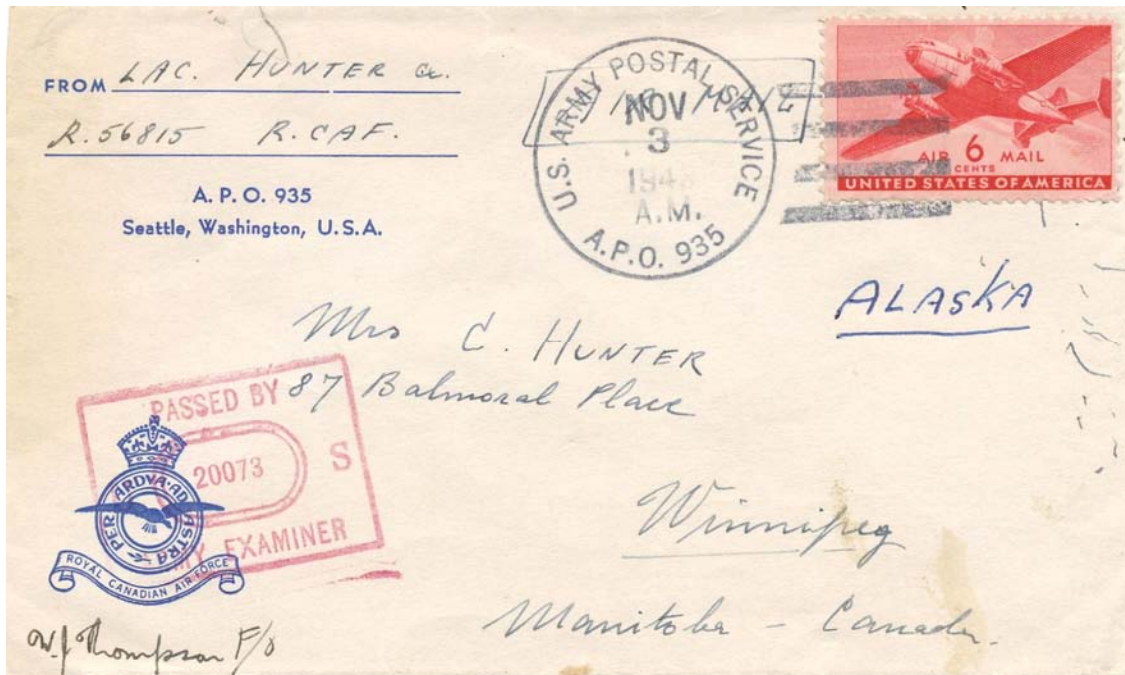 FROM LAC. HUNTER
R.56815 R.CAF.
A. P. O. 935
Seattle, Washington, U.S.A.
U.S. ARMY POSTAL SERVICE
NOV
3
A.M.
A.P.O. 935
AIR 6 MAIL
CENTS
UNITED STATES OF AMERICA
ALASKA
Mrs C. HUNTER
87 Balmoral Place
Winnipeg
Manitoba - Canada.
PASSED BY
20073 S
EXAMINER
PER ARDVA AD ASTRA
ROYAL CANADIAN AIR FORCE
W.J Thompson F/O